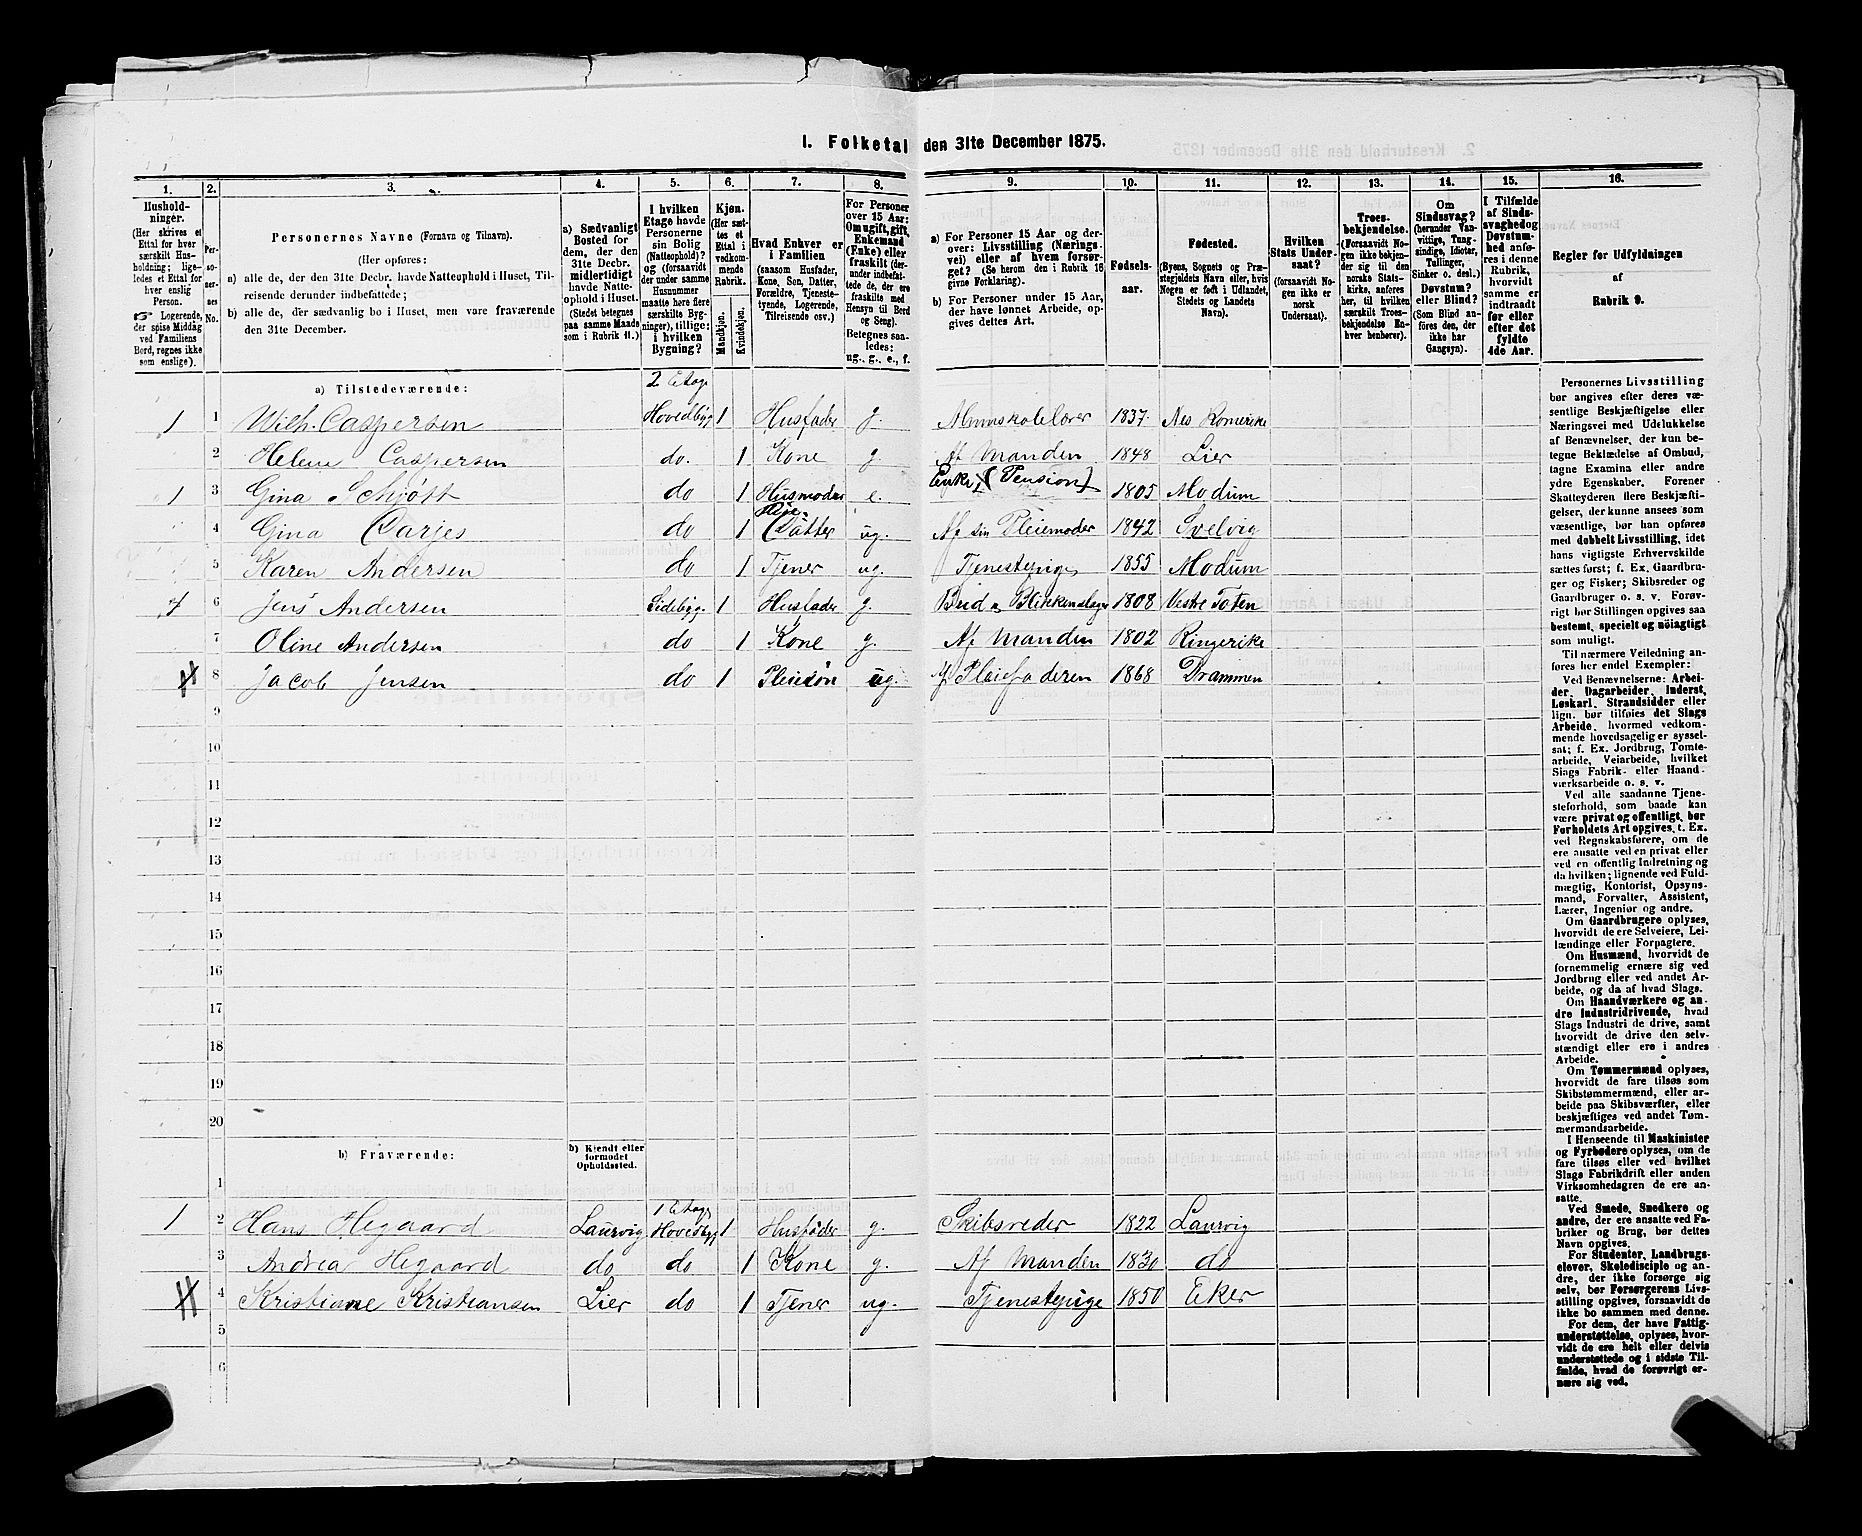 I. Folketal den 31te December 1875.
1. 2. 3. 4. 5. 6. 7. 8. 9. 10. 11. 12. 13. 14. 15. 16.
Husholdninger.
(Her skrives et
Ettal for hver
særskilt Husholdning; ligeledes et Ettal for
hver enslig
Person.
☞ Logerende,
der spise Middag
ved Familiens
Bord, regnes ikke
som enslige).
Personernes No.
Personernes Navne (Fornavn og Tilnavn).
(Her opføres:
a) alle de, der den 31te Decbr. havde Natteophold i Huset, Tilreisende derunder indbefattede;
b) alle de, der sædvanlig bo i Huset, men vare fraværende
den 31te December.
a) Sædvanligt
Bosted for
dem, der den
31te Decbr.
midlertidigt
havde Natteophold i Huset.
(Stedet betegnes
paa samme Maade
som i Rubrik 11.)
I hvilken
Etage havde
Personerne
sin Bolig
(Natteophold)?
og (forsaavidt
der under samme
Husnummer
maatte høre flere
særskilte Bygninger), tillige:
i hvilken
Bygning?
Kjøn.
(Her sættes et
Ettal i
vedkommende
Rubrik.
Mandkjøn.
Kvindekjøn.
Hvad Enhver er
i Familien
(saasom Husfader,
Kone, Søn, Datter,
Forældre, Tjenestetyende, Logerende,
Tilreisende osv.)
For Personer
over 15 Aar:
Om ugift, gift,
Enkemand
(Enke) eller
fraskilt (derunder indbefattede de, der ere
fraskilte med
Hensyn til Bord
og Seng).
Betegnes saaledes:
ug., g., e., f.
a) For Personer 15 Aar og derover: Livsstilling (Næringsvei) eller af hvem forsørget? (Se herom den i Rubrik 16
givne Forklaring).
b) For Personer under 15 Aar,
der have lønnet Arbeide, opgives dettes Art.
Fødselsaar.
Fødested.
(Byens, Sognets og Præstegjeldets Navn, eller, hvis
Nogen er født i Udlandet,
Stedets og Landets
Navn).
Hvilken
Stats Undersaat?
(forsaavidt Nogen ikke er
norsk
Undersaat).
Troesbekjendelse.
(Forsaavidt Nogen ikke bekjender sig til den
norske Statskirke, anføres
her, til hvilken
særskilt Troesbekjendelse Enhver henhører).
Om
Sindssvag?
(herunder Vanvittige, Tungsindige, Idioter,
Tullinger,
Sinker o. desl.)
Døvstum?
eller Blind?
(Som Blind anføres den, der
ikke har
Gangsyn).
I Tilfælde
af Sindssvaghed og
Døvstumhed anføres i denne
Rubrik,
hvorvidt
samme er
indtraadt
før eller
efter det
fyldte
4de Aar.
Regler for Udfyldningen
af
Rubrik 9.
a) Tilstedeværende:
2 Etage
1 1 Wilh. Caspersen Hovedbyg 1 Husfader g. Almuskolelærer 1837 Nes Romerike
2 Helene Caspersen do. 1 Kone g. Af Manden 1848 Lier
1 3 Gina Schiøtt do 1 Husmoder e. Enke (Pension) 1805 Modum
4 Gina Darjes do 1 Pleie Datter ug. Af sin Pleiemoder 1842 Svelvig
5 Karen Andersen do 1 Tjener ug. Tjenestepige 1855 Modum
1 6 Jens Andersen Sidebyg. 1 Husfader g. Blikkenslager 1808 Vestre Toten
7 Oline Andersen do 1 Kone g. Af Manden 1802 Ringerike
8 Jacob Jensen do 1 Pleiesøn ug. Af Pleiefaderen 1868 Drammen
9
10
11
12
13
14
15
16
17
18
19
20
b) Fraværende:
b) Kjendt eller
formodet
Opholdssted.
1
1 Etage
1 2 Hans Hegaard Laurvig Hovedbyg 1 Husfader g. Skibsreder 1822 Laurvig
3 Andrea Hegaard do do 1 Kone g. Af Manden 1830 do
4 Kristiane Kristiansen Lier do 1 Tjener ug. Tjenestepige 1850 Eker
5
6
Personernes Livsstilling
bør angives efter deres væsentlige Beskjæftigelse eller
Næringsvei med Udelukkelse
af Benævnelser, der kun betegne Beklædelse af Ombud,
tagne Examina eller andre
ydre Egenskaber. Forener
Skatteyderen flere Beskjæftigelser, der kunne ansees som
væsentlige, bør han opføres
med dobbelt Livsstilling, idet
hans vigtigste Erhvervskilde
sættes først; f. Ex. Gaardbruger og Fisker; Skibsreder og
Gaardbruger o. s. v. Forøvrigt bør Stillingen opgives saa
bestemt, specielt og nöiagtigt
som muligt.
Til nærmere Veiledning anføres her endel Exempler:
Ved Benævnelserne: Arbeider, Dagarbeider, Inderst,
Løskarl, Strandsidder eller
lign. bør tilføies det Slags
Arbeide, hvormed vedkommende hovedsagelig er sysselsat; f. Ex. Jordbrug, Tomtearbeide, Veiarbeide, hvilket
Slags Fabrik- eller Haandværksarbeide o. s. v.
Ved alle saadanne Tjenesteforhold, som baade kan
være privat og offentligt, bør
Forholdets Art opgives, t. Ex.
ved Regnskabsførere, om de
ere ansatte ved en privat eller
ved en offentlig Indretning og
da hvilken; lignende ved Fuldmægtig, Kontorist, Opsynsmand, Forvalter, Assistent,
Lærer, Ingeniør og andre.
Om Gaardbrugere oplyses,
hvorvidt de ere Selveiere, Leilændinge eller Forpagtere.
Om Husmænd, hvorvidt de
fornemmelig ernære sig ved
Jordbrug eller ved andet Arbeide, og da af hvad Slags.
Om Haandværkere og andre Industridrivende, hvad
Slags Industri de drive, samt
hvorvidt de drive den selvstændigt eller ere i andres
Arbeide.
Om Tømmermænd oplyses,
hvorvidt de fare tilsøs som
Skibstømmermænd, eller arbeide paa Skibsværfter, eller
beskjæftiges ved andet Tømmermandsarbeide.
I Henseende til Maskinister
og Fyrbødere oplyses, om de
fare tilsøs eller ved hvilket
Slags Fabrikdrift eller anden
Virksomhedsgren de ere ansatte.
Ved Smede, Snedkere og
andre, der ere ansatte ved Fabriker og Brug, bør dettes
Navn opgives.
For Studenter, Landbrugselever, Skoledisciple og andre, der ikke forsørge sig
selv, bør Forsørgerens Livsstilling opgives, forsaavidt de
ikke bo sammen med denne.
For dem, der have Fattigunderstøttelse, oplyses, hvorvidt de ere helt eller delvis
understøttede og i sidste Tilfælde, hvad de forøvrigt ernære sig ved.